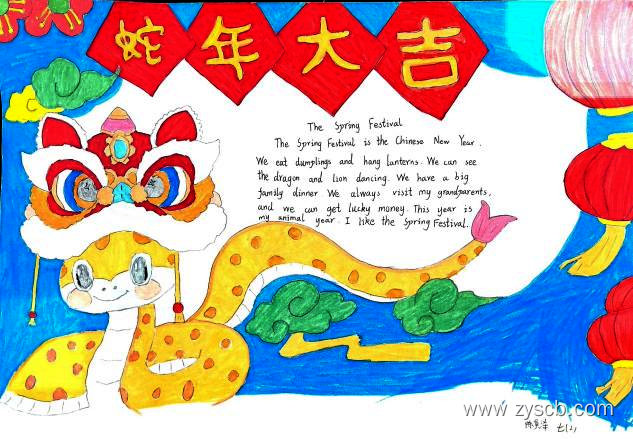 蛇年大吉
The Spring Festival
The Spring Festival is the Chinese New Year.
We eat dumplings and hang lanterns. We can see
the dragon and lion dancing. We have a big
family dinner. We always visit my grandparents,
and we can get lucky money. This year is
my animal year. I like the Spring Festival.
www.zyscb.com
七(2)